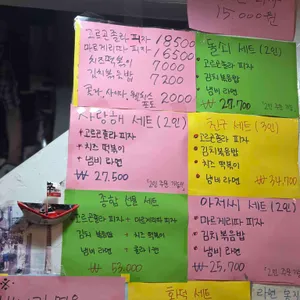 15,000원
고르곤졸라 피자 18500
마르게리따 피자 16500
치즈떡볶이 7000
김치볶음밥 7200
콜라, 사이다, 웰치스 포도 2000
돌쇠 세트 (2인)
고르곤졸라 피자
김치볶음밥
냄비 라면
₩ 27,700
사랑해 세트 (2인)
+ 고르곤졸라 피자
+ 치즈 떡볶이
+ 냄비 라면
₩ 27,500
친구 세트 (3인)
고르곤졸라 피자
김치볶음밥
치즈 떡볶이
냄비 라면
₩ 34,700
종합 선물 세트
고르곤졸라 피자 + 마르게리따 피자
김치 볶음밥 + 치즈 떡볶이
냄비 라면 +
₩ 55,000
아저씨 세트 (2인)
마르게리따 피자
김치 볶음밥
냄비 라면
₩ 25,700
세트